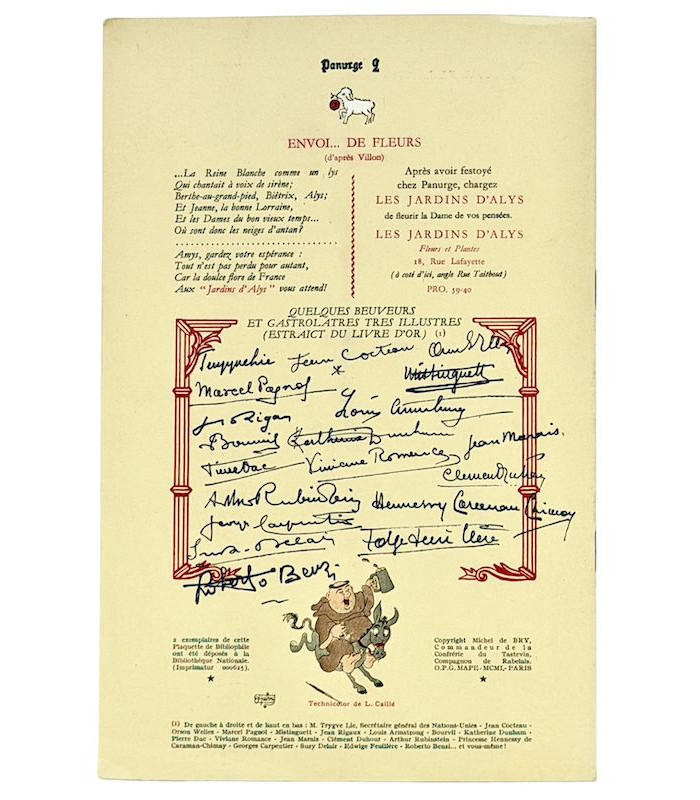 Panurge 9
ENVOI... DE FLEURS
(d'après Villon)
...La Reine Blanche comme un lys
Qui chantait à voix de sirène;
Berthe-au-grand-pied, Biétrix, Alys;
Et Jeanne, la bonne Lorraine,
Et les Dames du bon vieux temps...
Où sont donc les neiges d'antan?
Amys, gardez votre espérance :
Tout n'est pas perdu pour autant,
Car la doulce flore de France
Aux "Jardins d'Alys" vous attend!
Après avoir festoyé
chez Panurge, chargez
LES JARDINS D'ALYS
de fleurir la Dame de vos pensées.
LES JARDINS D'ALYS
Fleurs et Plantes
18, Rue Lafayette
(à coté d'ici, angle Rue Taitbout)
PRO. 59-40
QUELQUES BEUVEURS
ET GASTROLATRES TRES ILLUSTRES
(ESTRAICT DU LIVRE D'OR) (1)
Jean Cocteau
Marcel Pagnol
Mistinguett
J Rigau
Louis Armstrong
Bourvil Katherine Dunham
Jean Marais.
Pierre Dac Viviane Romance
Clément Duhour
Arthur Rubinstein Hennessy Caraman Chimay
Georges Carpentier
Suzy Delair
Edwige Feuillère
Roberto Benzi
2 exemplaires de cette
Plaquette de Bibliophile
ont été déposés à la
Bibliothèque Nationale.
(Imprimatur 000615).
Technicolor de L. Caillé
Copyright Michel de BRY,
Commandeur de la
Confrérie du Tastevin,
Compagnou de Rabelais.
O.P.G. MAPE-MCML-PARIS
(1) De gauche à droite et de haut en bas : M. Trygve Lie, Secrétaire général des Nations-Unies - Jean Cocteau -
Orson Welles - Marcel Pagnol - Mistinguett - Jean Rigaux - Louis Armstrong - Bourvil - Katherine Dunham -
Pierre Dac - Viviane Romance - Jean Marais - Clément Duhour - Arthur Rubinstein - Princesse Hennessy de
Caraman-Chimay - Georges Carpentier - Suzy Delair - Edwige Feuillère - Roberto Benzi... et vous-même !